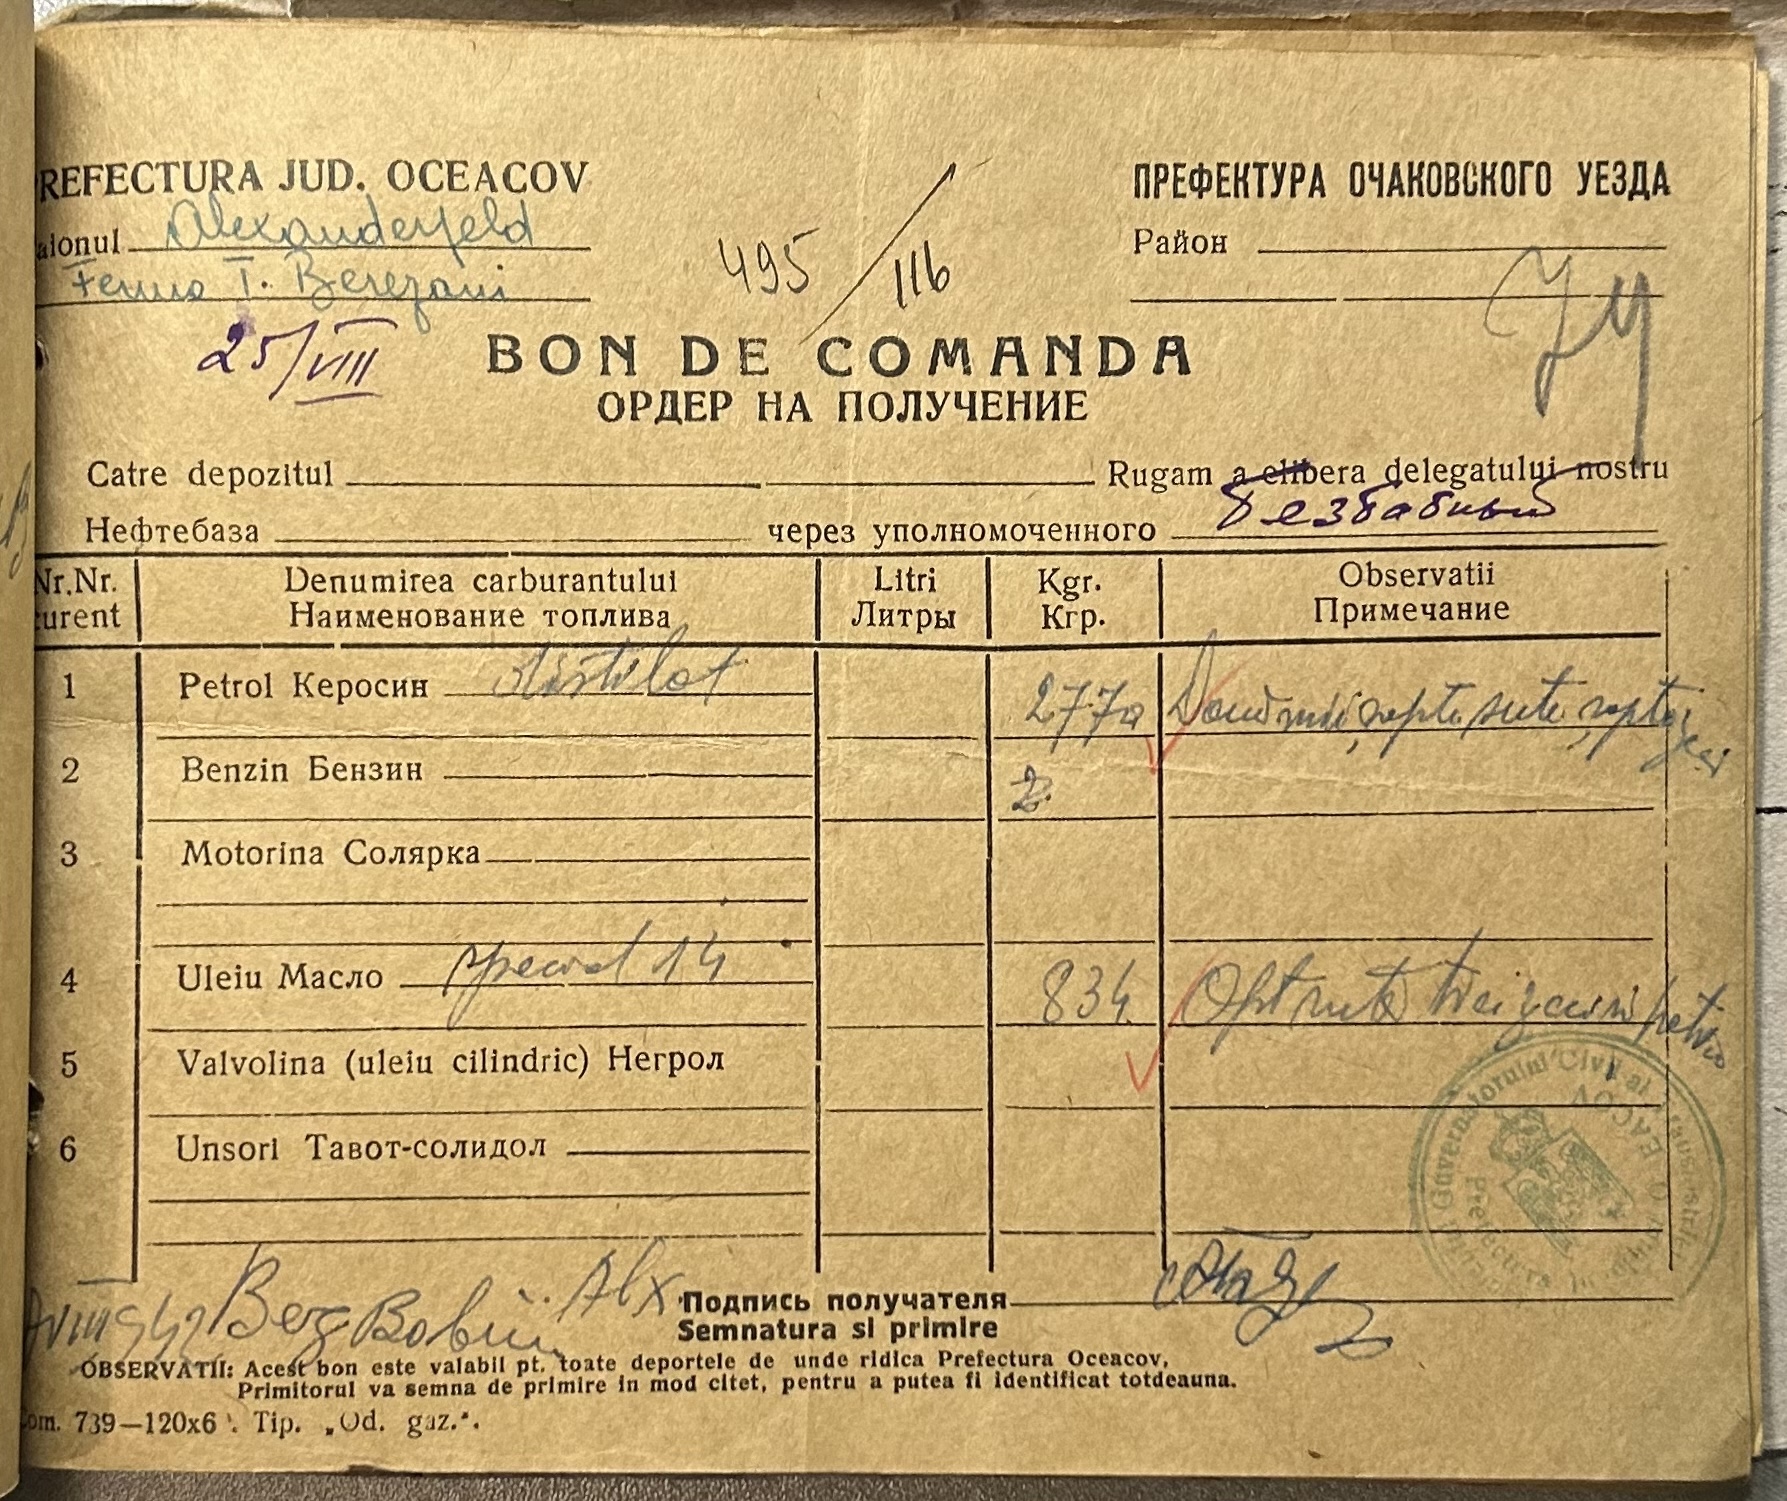 REFECTURA JUD. OCEACOV
aionul Alexanderfeld
Ferma T. Berezani
25/VIII
495/116
ПРЕФЕКТУРА ОЧАКОВСКОГО УЕЗДА
Район
BON DE COMANDA
ОРДЕР НА ПОЛУЧЕНИЕ
Catre depozitul Rugam a elibera delegatului nostru
Нефтебаза через уполномоченного Безбабный
Nr.Nr. curent Denumirea carburantului Наименование топлива Litri Литры Kgr. Кгр. Observatii Примечание
1 Petrol Керосин distilat 2770 Două mii, șapte sute, șaptezeci
2 Benzin Бензин
3 Motorina Солярка
4 Uleiu Масло special 14 834. Opt sute treizeci și patru
5 Valvolina (uleiu cilindric) Негрол
6 Unsori Тавот-солидол
Guvernatorului Civil al Transnistriei
Prefectura Jud. OCEACOV
Berg Bobin Alx.
Подпись получателя
Semnatura si primire
OBSERVATII: Acest bon este valabil pt. toate deportele de unde ridica Prefectura Oceacov,
Primitorul va semna de primire in mod citet, pentru a putea fi identificat totdeauna.
om. 739—120x6 . Tip. „Od. gaz.".